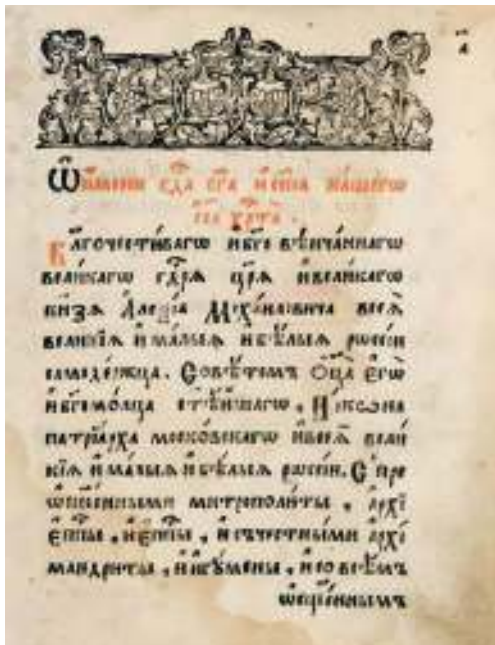 Ѿ имени гдⷭ҇а бг҃а и сп҃са нашегѡ
іс҃а хрⷭ҇та̀.
Бл҃гочести́вагѡ и бг҃овѣнча́ннагѡ
вели́кагѡ гдⷭ҇рѧ цр҃ѧ̀ и вели́кагѡ
кнѧ́зѧ Алеѯі́а Миха́иловича всеѧ̀
вели́кїѧ и ма́лыѧ и бѣ́лыѧ рѡсі́и
самоде́ржца. Совѣ́томъ Ѻц҃а̀ єгѡ̀
и бг҃омо́лца ст҃ѣ́йшагѡ, Ни́кѡна
патрїа́рха моско́вскагѡ и всеѧ̀ вели́
кїѧ и ма́лыѧ и бѣ́лыѧ рѡсі́и. С пре
ѡсщ҃е́нными митрополи́ты, а҆рхїе
є҆пⷭ҇пы, и є҆пⷭ҇пы, и съ честны́ми а҆рхї
мандри́ты, и и҆гꙋ́мены, и со всѣ́мъ
ѡсщ҃е́ннымъ